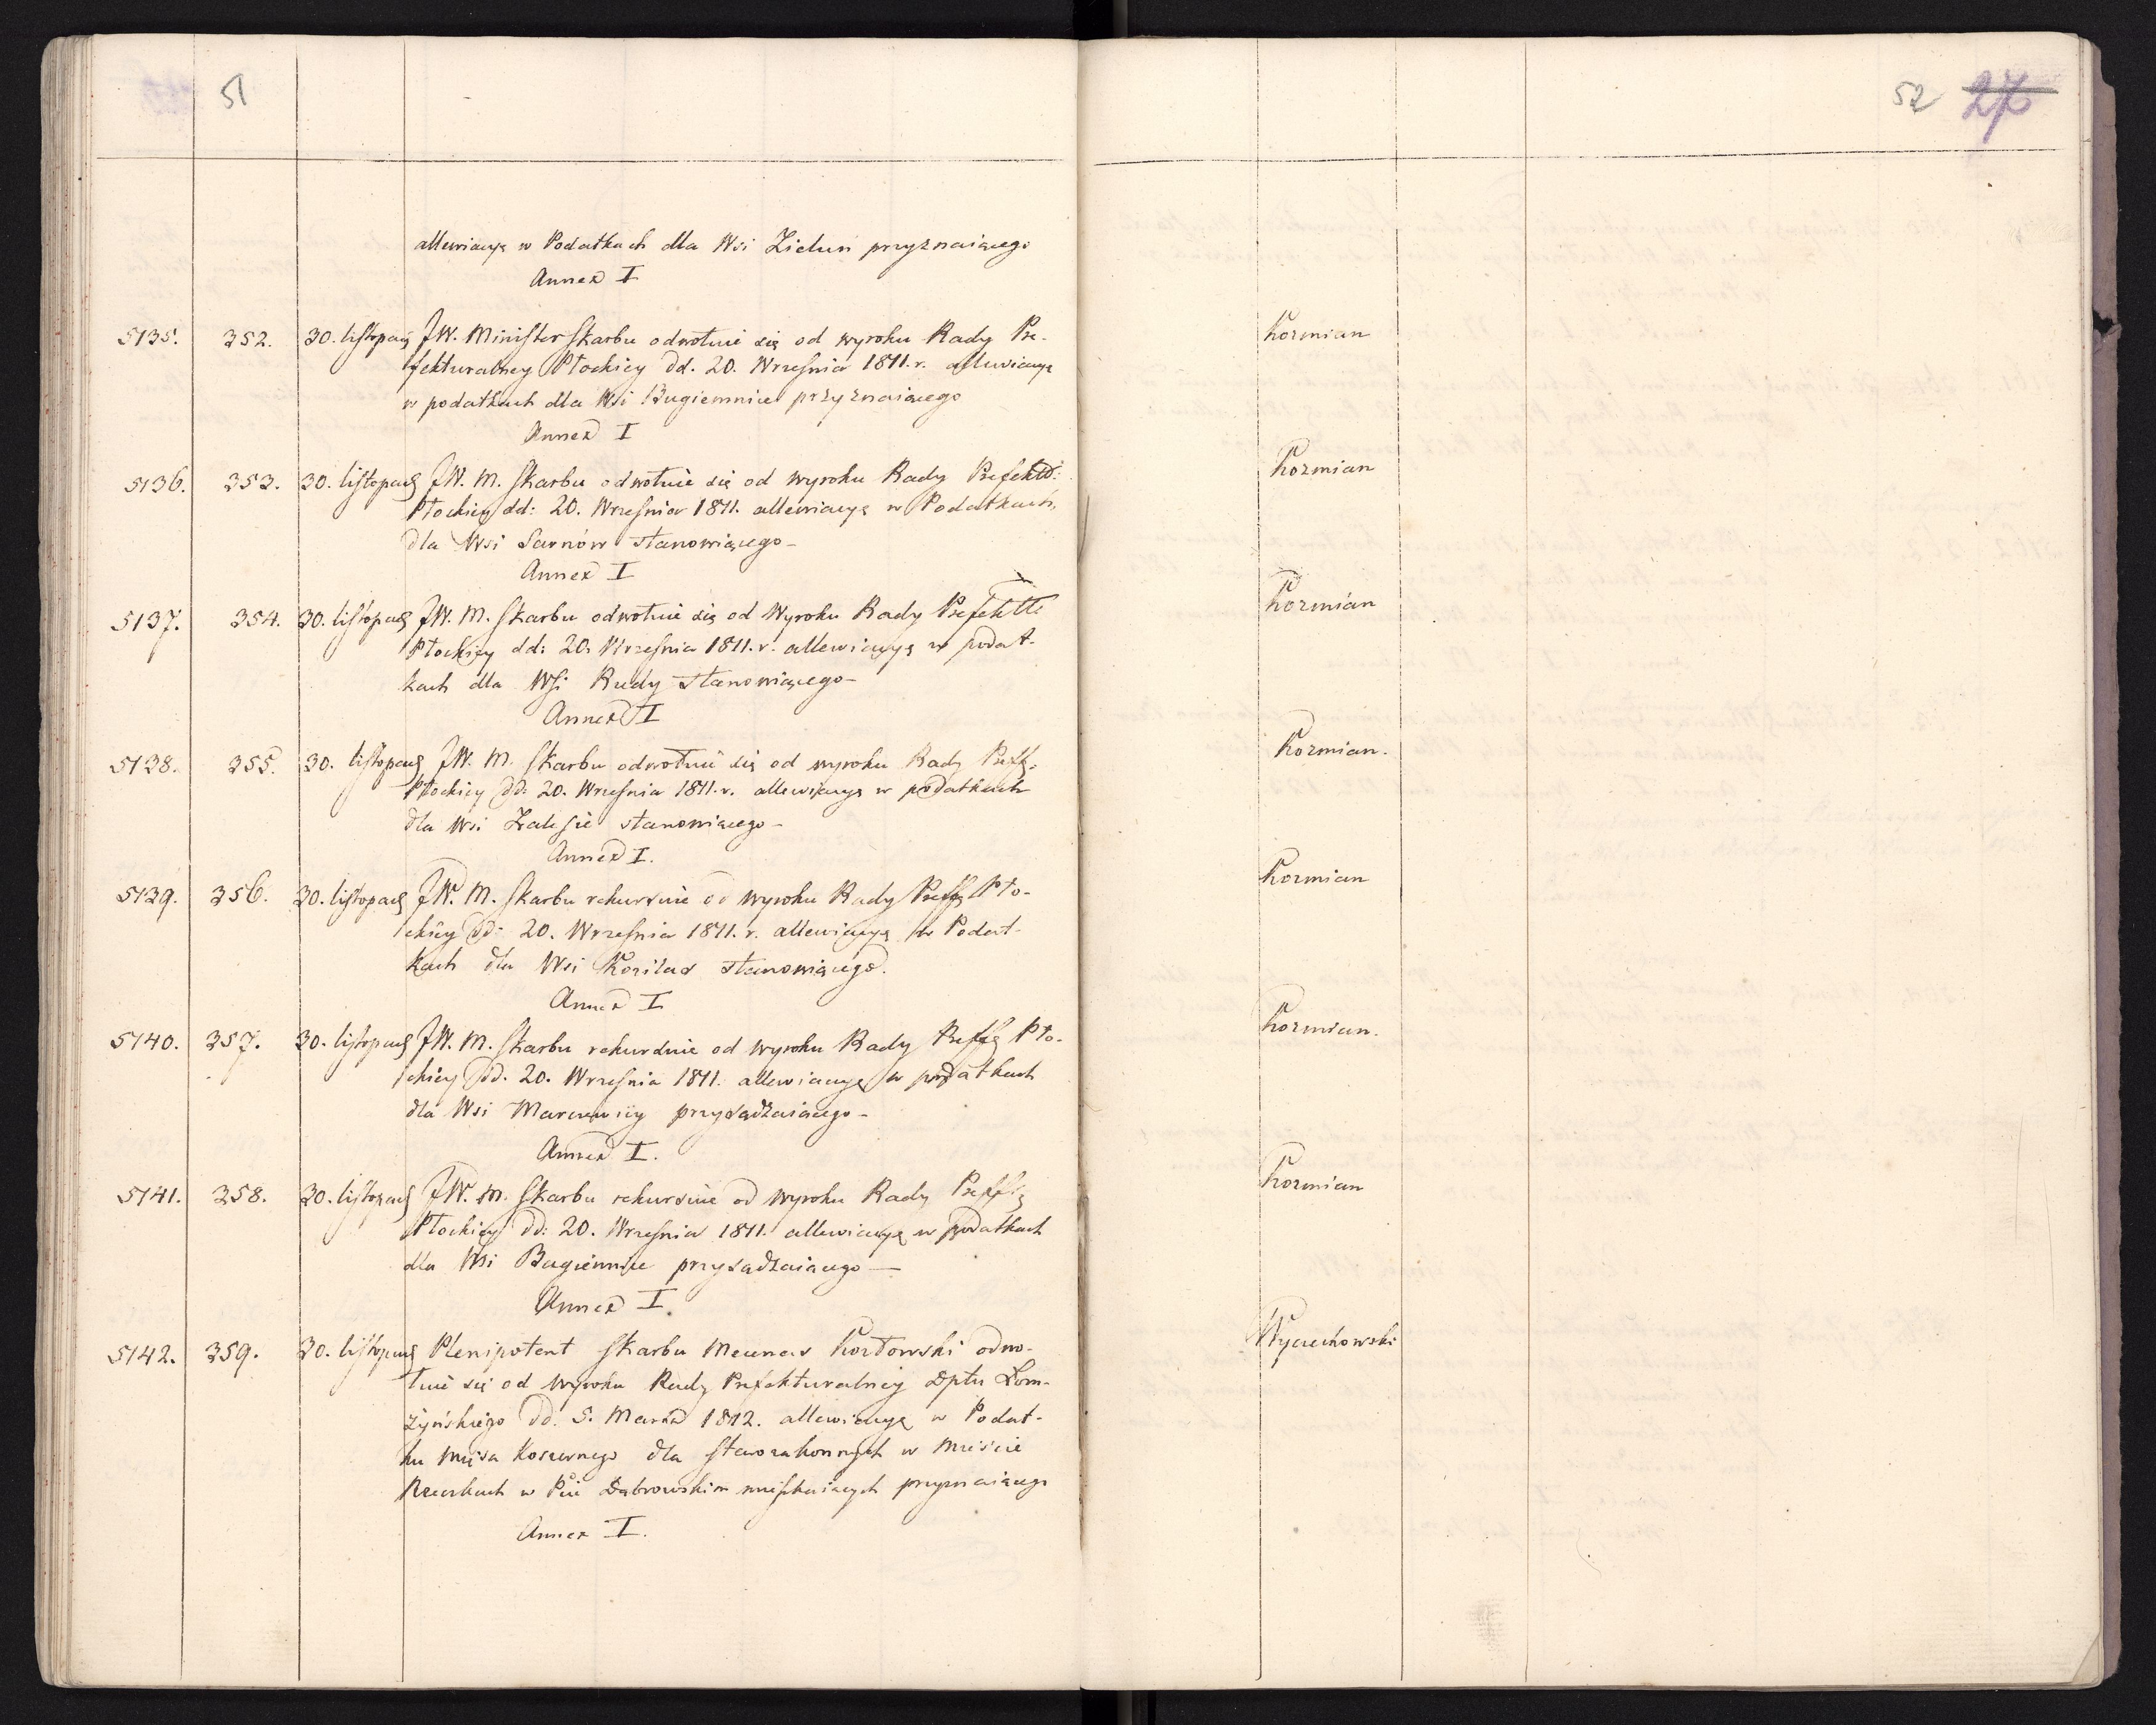 51
allewiacyę w Podatkach dla Wsi Zieluń przyznaiącego
Annex I
5135. 352. 30. listopad JW. Minister Skarbu odwołuie się od wyroku Rady Pre-
fekturalney Płockiey dd. 20. Września 1811. r. allewiacyę
w podatkach dla Wsi przyznaiącego
Annex I
5136. 353. 30. listopad JW. M. Skarbu odwołuie się od wyroku Rady Prefektu:
Płockiey dd: 20. Września 1811. allewiacyę w Podatkach,
dla Wsi Sarnów stanowiącego-
Annex I
5137. 354. 30. listopad JW. M. Skarbu odwołuie się od Wyroku Rady Prefektu
Płockiey dd: 20. Września 1811. r. allewiacyę w podat-
kach dla Wsi Rudy stanowiącego-
Annex I
5138. 355. 30. listopad JW. M. Skarbu odwołuie się od wyroku Rady Preft.
Płockiey dd: 20. Września 1811. r. allewiacyę w podatkach
dla Wsi Zalesie stanowiącego-
Annex I.
5139. 356. 30. listopad JW. M. Skarbu rekursuie od wyroku Rady Preft Pło-
ckiey dd: 20. Września 1811. r. allewiacyę w Podat-
kach dla Wsi stanowiącego.
Annex I
5140. 357. 30. listopad JW. M. Skarbu rekursuie od wyroku Rady Preft Pło-
ckiey dd. 20. Września 1811. allewiacyę w podatkach
dla Wsi przysądzaiącego-
Annex I.
5141. 358. 30. listopad JW. M. Skarbu rekursuie od wyroku Rady Preft
Płockiey dd: 20. Września 1811. allewiacyę w podatkach
dla Wsi przysadzaiącego—
Annex I.
5142. 359. 30. listopad Plenipotent Skarbu Mecenas Kozłowski odwo-
łuie się od wyroku Rady Prefekturalney Dptu Łom-
żyńskiego dd. 5. Marca 1812. allewiacyę w Podat-
ku mięsa Koszernego dla Starozakonnych w Mieście
w Pcie Dąbrowskim mieszkaiących przyznaiącego
Annex I.
52 27
Kozmian
Kozmian
Kozmian
Kozmian.
Kozmian
Kozmian.
Kozmian
Wyczechowski